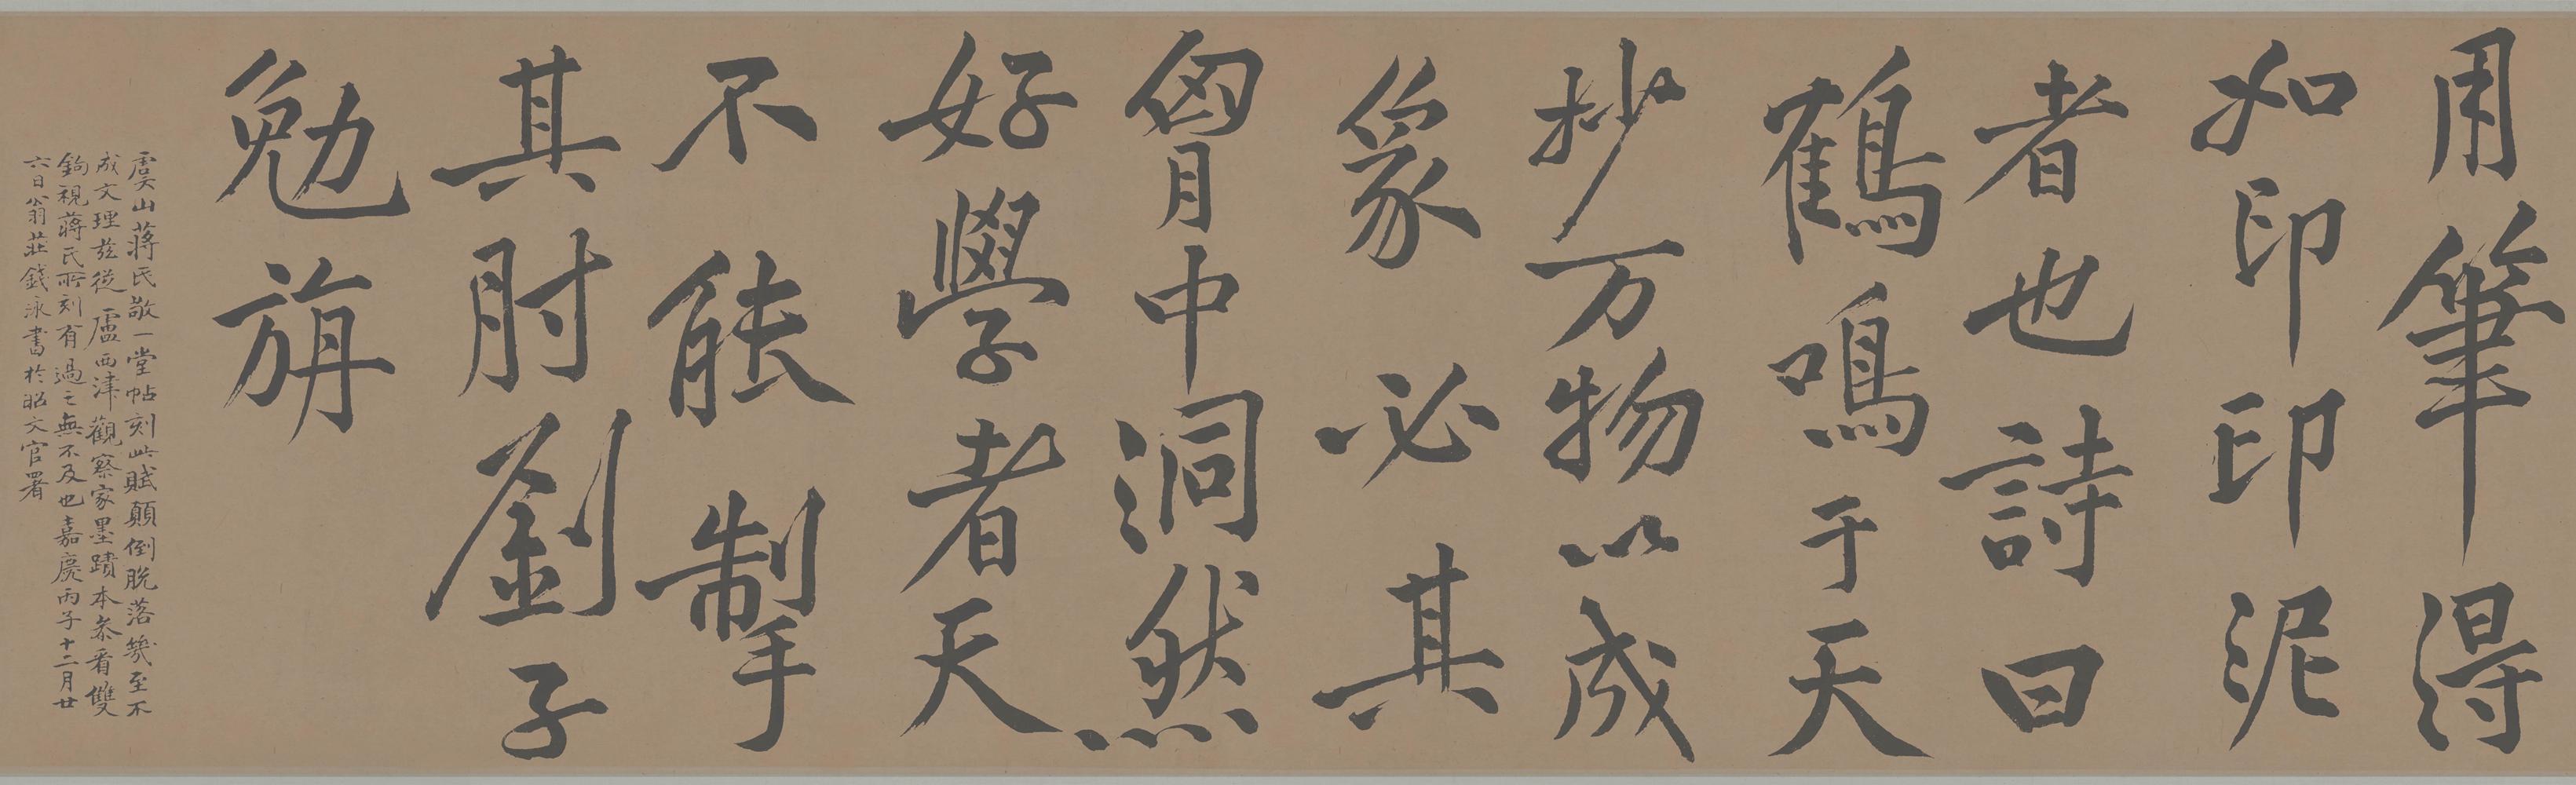 用筆得
如印印泥
者也詩曰
鶴鳴于天
抄万物以成
象必其
胷中洞然
好學者天
不能掣
其肘劉子
勉旃
虞山蔣氏敬一堂帖刻此賦顛倒脫落幾至不
成文理茲從盧西津觀察家墨蹟本叅看雙
鉤視蔣氏所刻有過之無不及也嘉慶丙子十二月廿
六日翁莊錢泳書於昭文官署